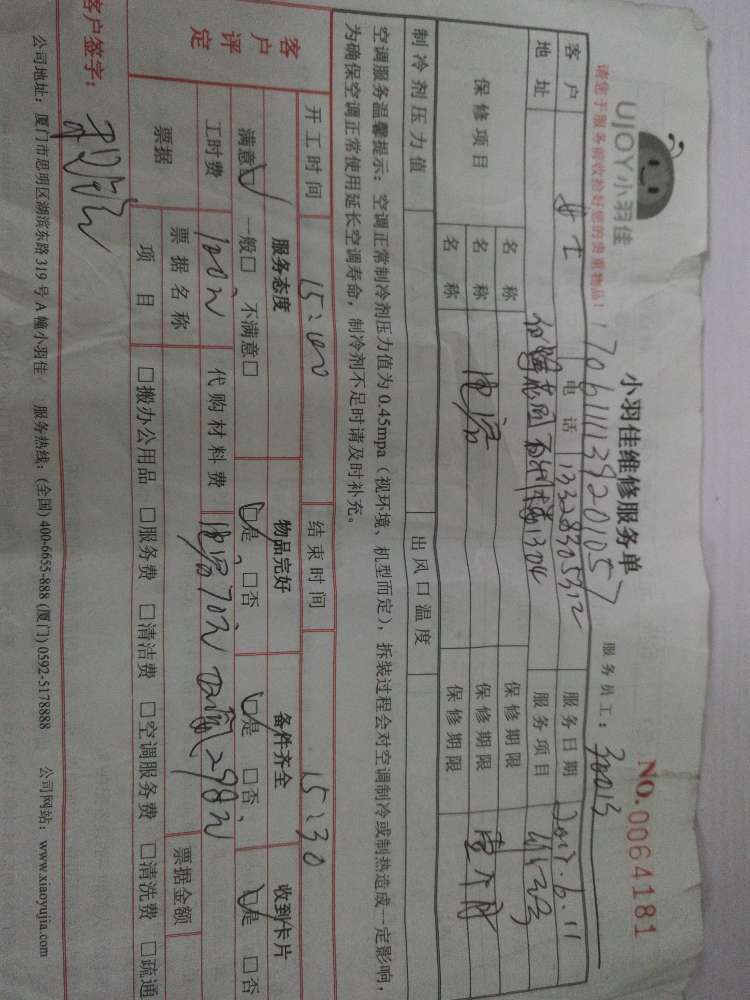 UJOY小羽佳
请您于服务前收捡好您的贵重物品！
小羽佳维修服务单
NO.0064181
170611113920105
服务员工：30013
客户 女士 电话 13328305312 服务日期 2017.6.11
地址 1304 服务项目
保修项目 名称 保修期限
名称 电容 保修期限 壹个月
名称 保修期限
制冷剂压力值 出风口温度
空调服务温馨提示：空调正常制冷剂压力值为 0.45mpa（视环境、机型而定），拆装过程会对空调制冷或制热造成一定影响，
为确保空调正常使用延长空调寿命，制冷剂不足时请及时补充。
客户评定 开工时间 15:00 结束时间 15:30
服务态度 物品完好 备件齐全 收到卡片
满意□ 一般□ 不满意□ □是 □否、 □是 □否、 □是 □否
工时费 100元 代购材料费 电容70元 298元
票据 票据名称 票据金额
项目 □搬办公用品 □服务费 □清洁费 □空调服务费 □清洗费 □疏通
客户签字：
公司地址：厦门市思明区湖滨东路 319 号 A 幢小羽佳 服务热线：(全国) 400-6655-888 (厦门) 0592-5178888 公司网站：www.xiaoyujia.com